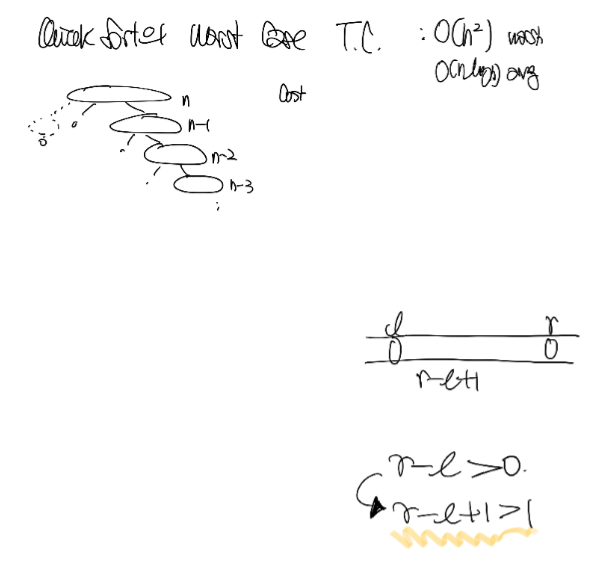 Quick Sort의 Worst Case T.C. : O(n²) worst
O(n log n) avg
n
Cost
0
n-1
0
n-2
n-3
l r
0 0
r-l+1
r-l>0.
r-l+1>1